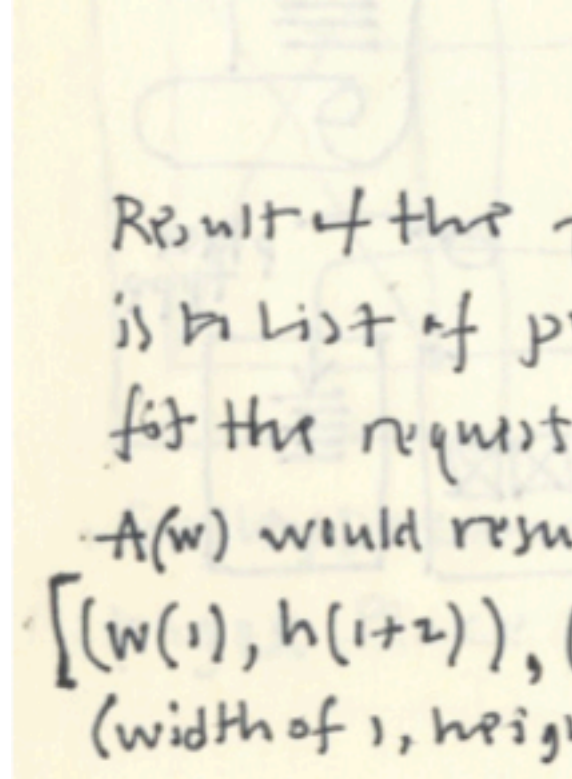 Result of the
is a list of
for the request
A(w) would resu
[(w(1), h(1+2)), (
(width of 1, heig